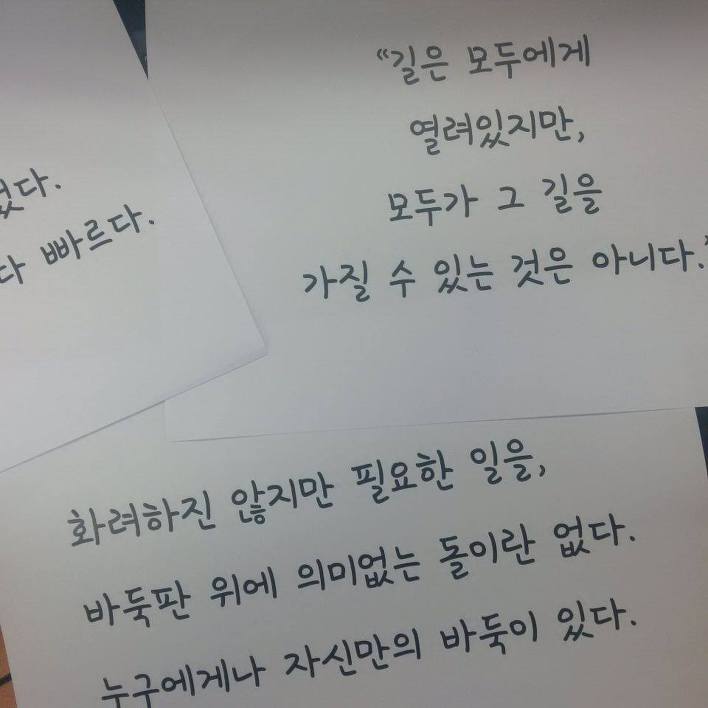 없다.
다 빠르다.
“길은 모두에게
열려있지만,
모두가 그 길을
가질 수 있는 것은 아니다.”
화려하진 않지만 필요한 일을,
바둑판 위에 의미없는 돌이란 없다.
누구에게나 자신만의 바둑이 있다.